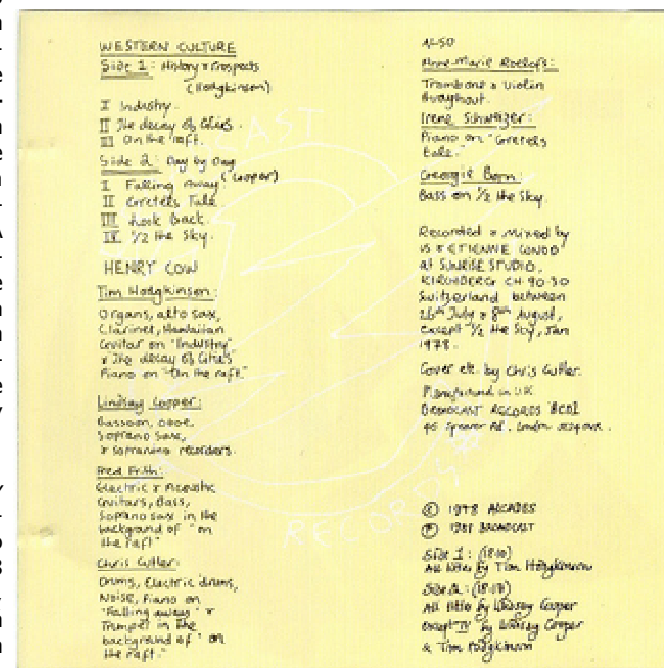 WESTERN CULTURE
Side 1: History & Prospects
(Hodgkinson)
I Industry.
II The decay of Cities.
III On the raft.
Side 2: Day by Day
(Cooper)
I Falling Away.
II Gretels Tale.
III Look Back.
IV 1/2 the Sky.
HENRY COW
Tim Hodgkinson:
Organs, alto sax,
Clarinet, Hawaiian
Guitar on "Industry"
& "The decay of Cities"
Piano on "On the raft."
Lindsay Cooper:
Bassoon, oboe,
Soprano sax,
& sopranino recorders.
Fred Frith:
Electric & Acoustic
Guitars, Bass,
Soprano sax in the
background of "on
the raft"
Chris Cutler:
Drums, Electric drums,
Noise, Piano on
"Falling away" &
Trumpet in the
background of "on
the raft."
ALSO
Anne-Marie Roelofs:
Trombone & Violin
throughout.
Irene Schweizer:
Piano on "Gretels
tale."
Georgie Born:
Bass on 1/2 the Sky.
Recorded & mixed by
US & ETIENNE CONOD
at SUNRISE STUDIO,
KIRCHBERG CH 90-30
Switzerland between
26th July & 8th August,
except 1/2 the Sky, Jan
1978.
Cover etc. by Chris Cutler.
Manufactured in UK
BROADCAST RECORDS BC01
Rd. London
© 1978
℗ 1981 BROADCAST
Side 1: (18-10)
All titles by Tim Hodgkinson
Side 2:
All titles by Lindsay Cooper
except IV by Lindsay Cooper
& Tim Hodgkinson
CAST
RECORDS